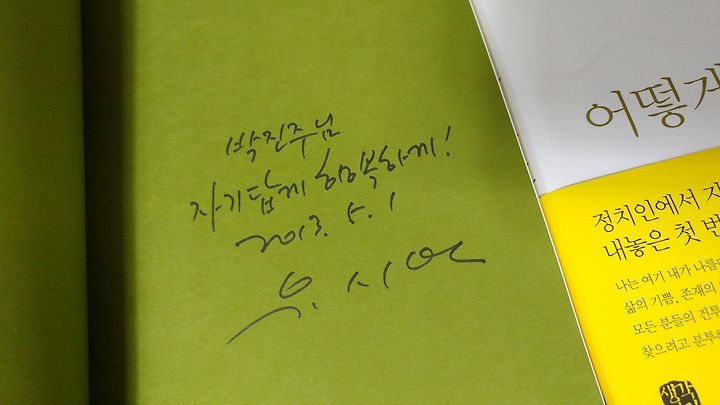 박진주님
자기답게 행복하게!
2013. 5. 1
유시민
어떻게
정치인에서
내놓은 첫 번
나는 여기 내가 나름
삶의 기쁨, 존재의
모든 분들의 건투
찾으려고 분투하
생각